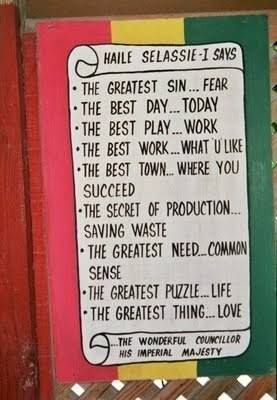 HAILE SELASSIE-I SAYS
• THE GREATEST SIN... FEAR
• THE BEST DAY... TODAY
• THE BEST PLAY... WORK
• THE BEST WORK... WHAT 'U' LIKE
• THE BEST TOWN... WHERE YOU
SUCCEED
• THE SECRET OF PRODUCTION...
SAVING WASTE
• THE GREATEST NEED... COMMON
SENSE
• THE GREATEST PUZZLE... LIFE
• THE GREATEST THING... LOVE
...THE WONDERFUL COUNCILLOR
HIS IMPERIAL MAJESTY